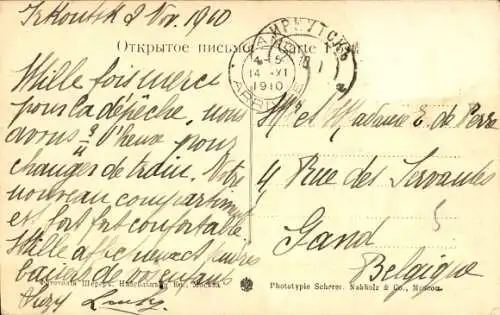 Irkoutsk 2 Nov. 1910
Открытое письмо. Carte
ИРКУТСКЪ
Mille fois merci
pour la dépêche, nous
avons 3 h'heux pour
changer de train. Notre
nouveau compartiment
est fort fort confortable
Mille affectueux
baisers de vos enfants
4-5
14 XI
1910
Mr et Madame E. de
4, Rue des Servantes
Gand
Belgique
Фототипія Шереръ, Набгольцъ и Ко., Москва.
Phototypie Scherer, Nabholz & Co., Moscou.